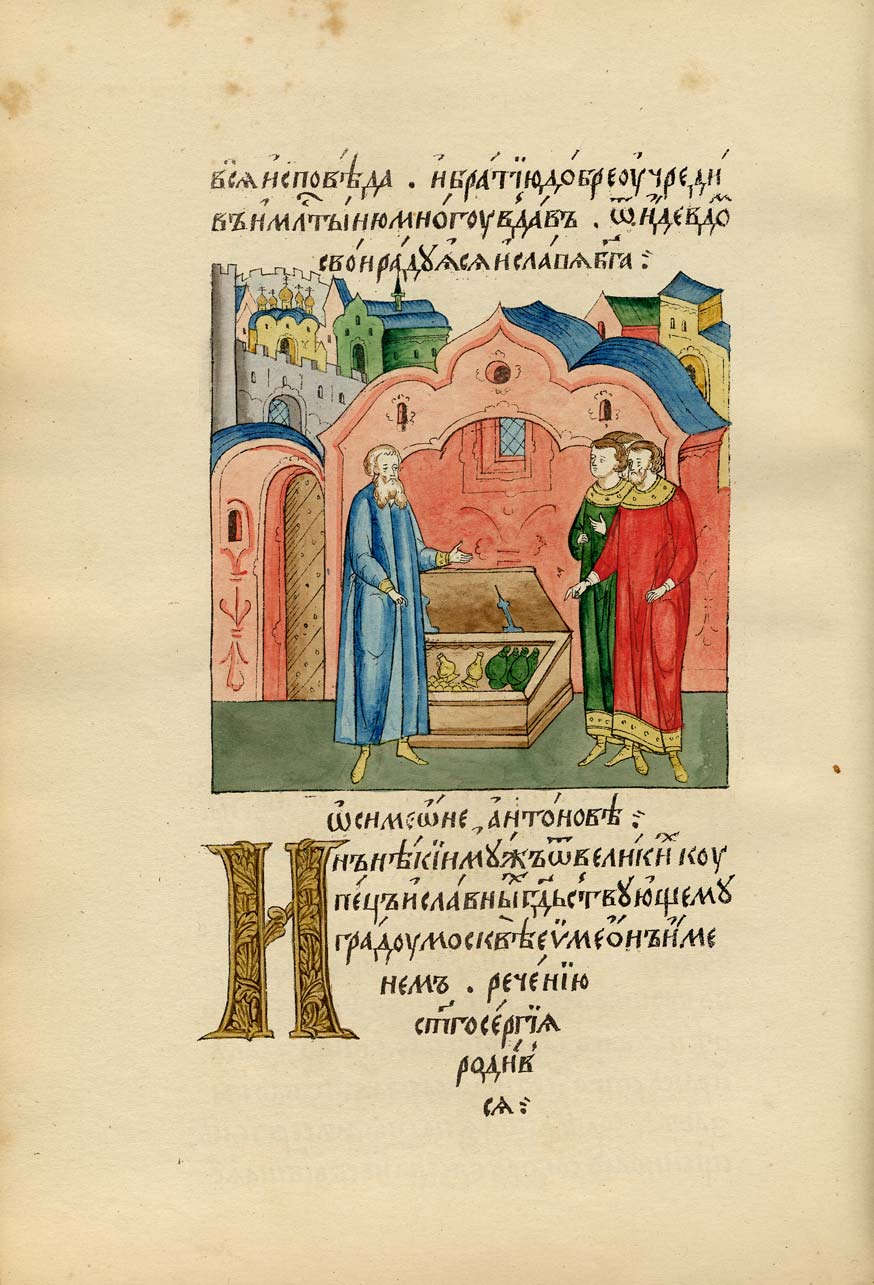 всѧ исповѣда . и братїю добре оучреди
въ и млⷭ҇тыню многоу въдавъ . ѿиде в до
свои радꙋѧсѧ и славѧ бг҃а :
ѡ симеѡне антоновѣ :
Инъ нѣкїи мꙋжъ ѿ великиⷯ коу
пецъ и славныⷯ гдⷭ҇ьствꙋющемꙋ
градоу москвѣ сѵмеонъ име
немъ . реченїю
ст҃го серьгїѧ
родив
сѧ :